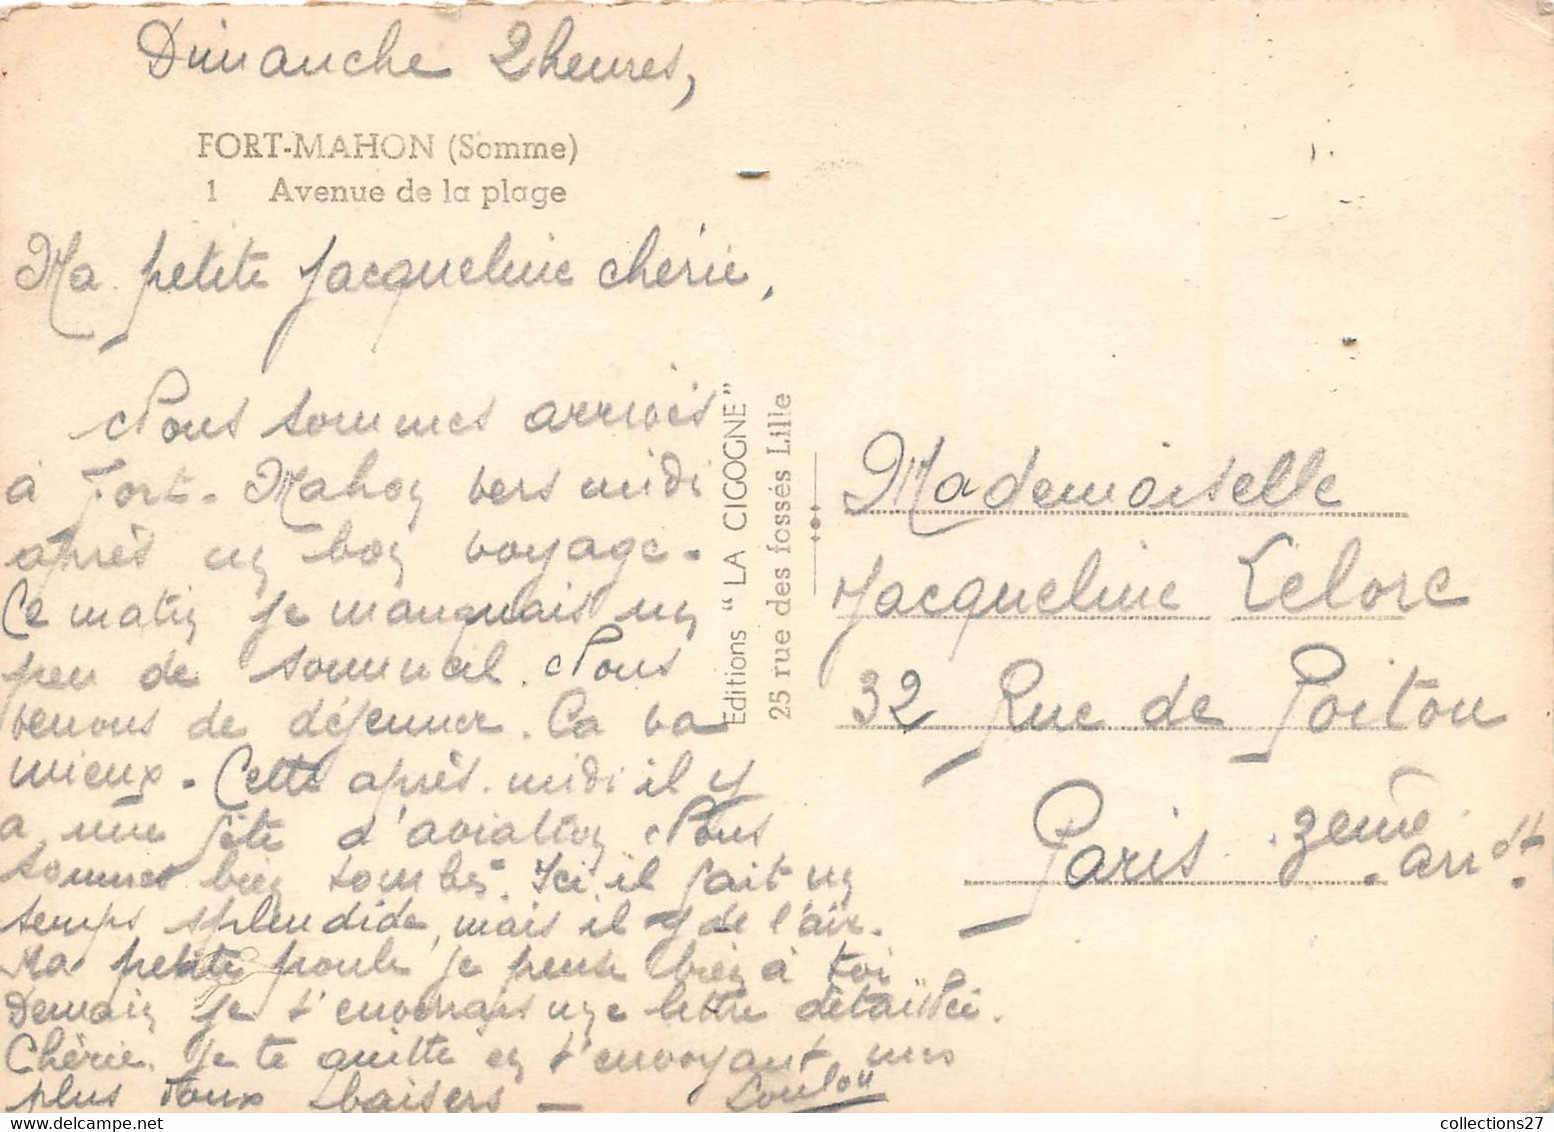 Dimanche 2 heures,
FORT-MAHON (Somme)
1 Avenue de la plage
Ma petite Jacqueline chérie,
Nous sommes arrivés
à Fort-Mahon vers midi
après un bon voyage.
Ce matin je manquais un
peu de sommeil. Nous
venons de déjeuner. Ca va
mieux. Cette après-midi il y
a une fête d'aviation Nous
sommes bien tombés. Ici il fait un
temps splendide, mais il y de l'air.
Ma petite poule je pense bien à toi
Demain je t'enverrais une lettre détaillée.
Chérie. Je te quitte en t'envoyant mes
plus doux baisers —
Loulou
Editions "LA CIGOGNE"
25 rue des fossés Lille
Mademoiselle
Jacqueline Lelorc
32 Rue de Poitou
Paris 3eme arrdt.
collections27